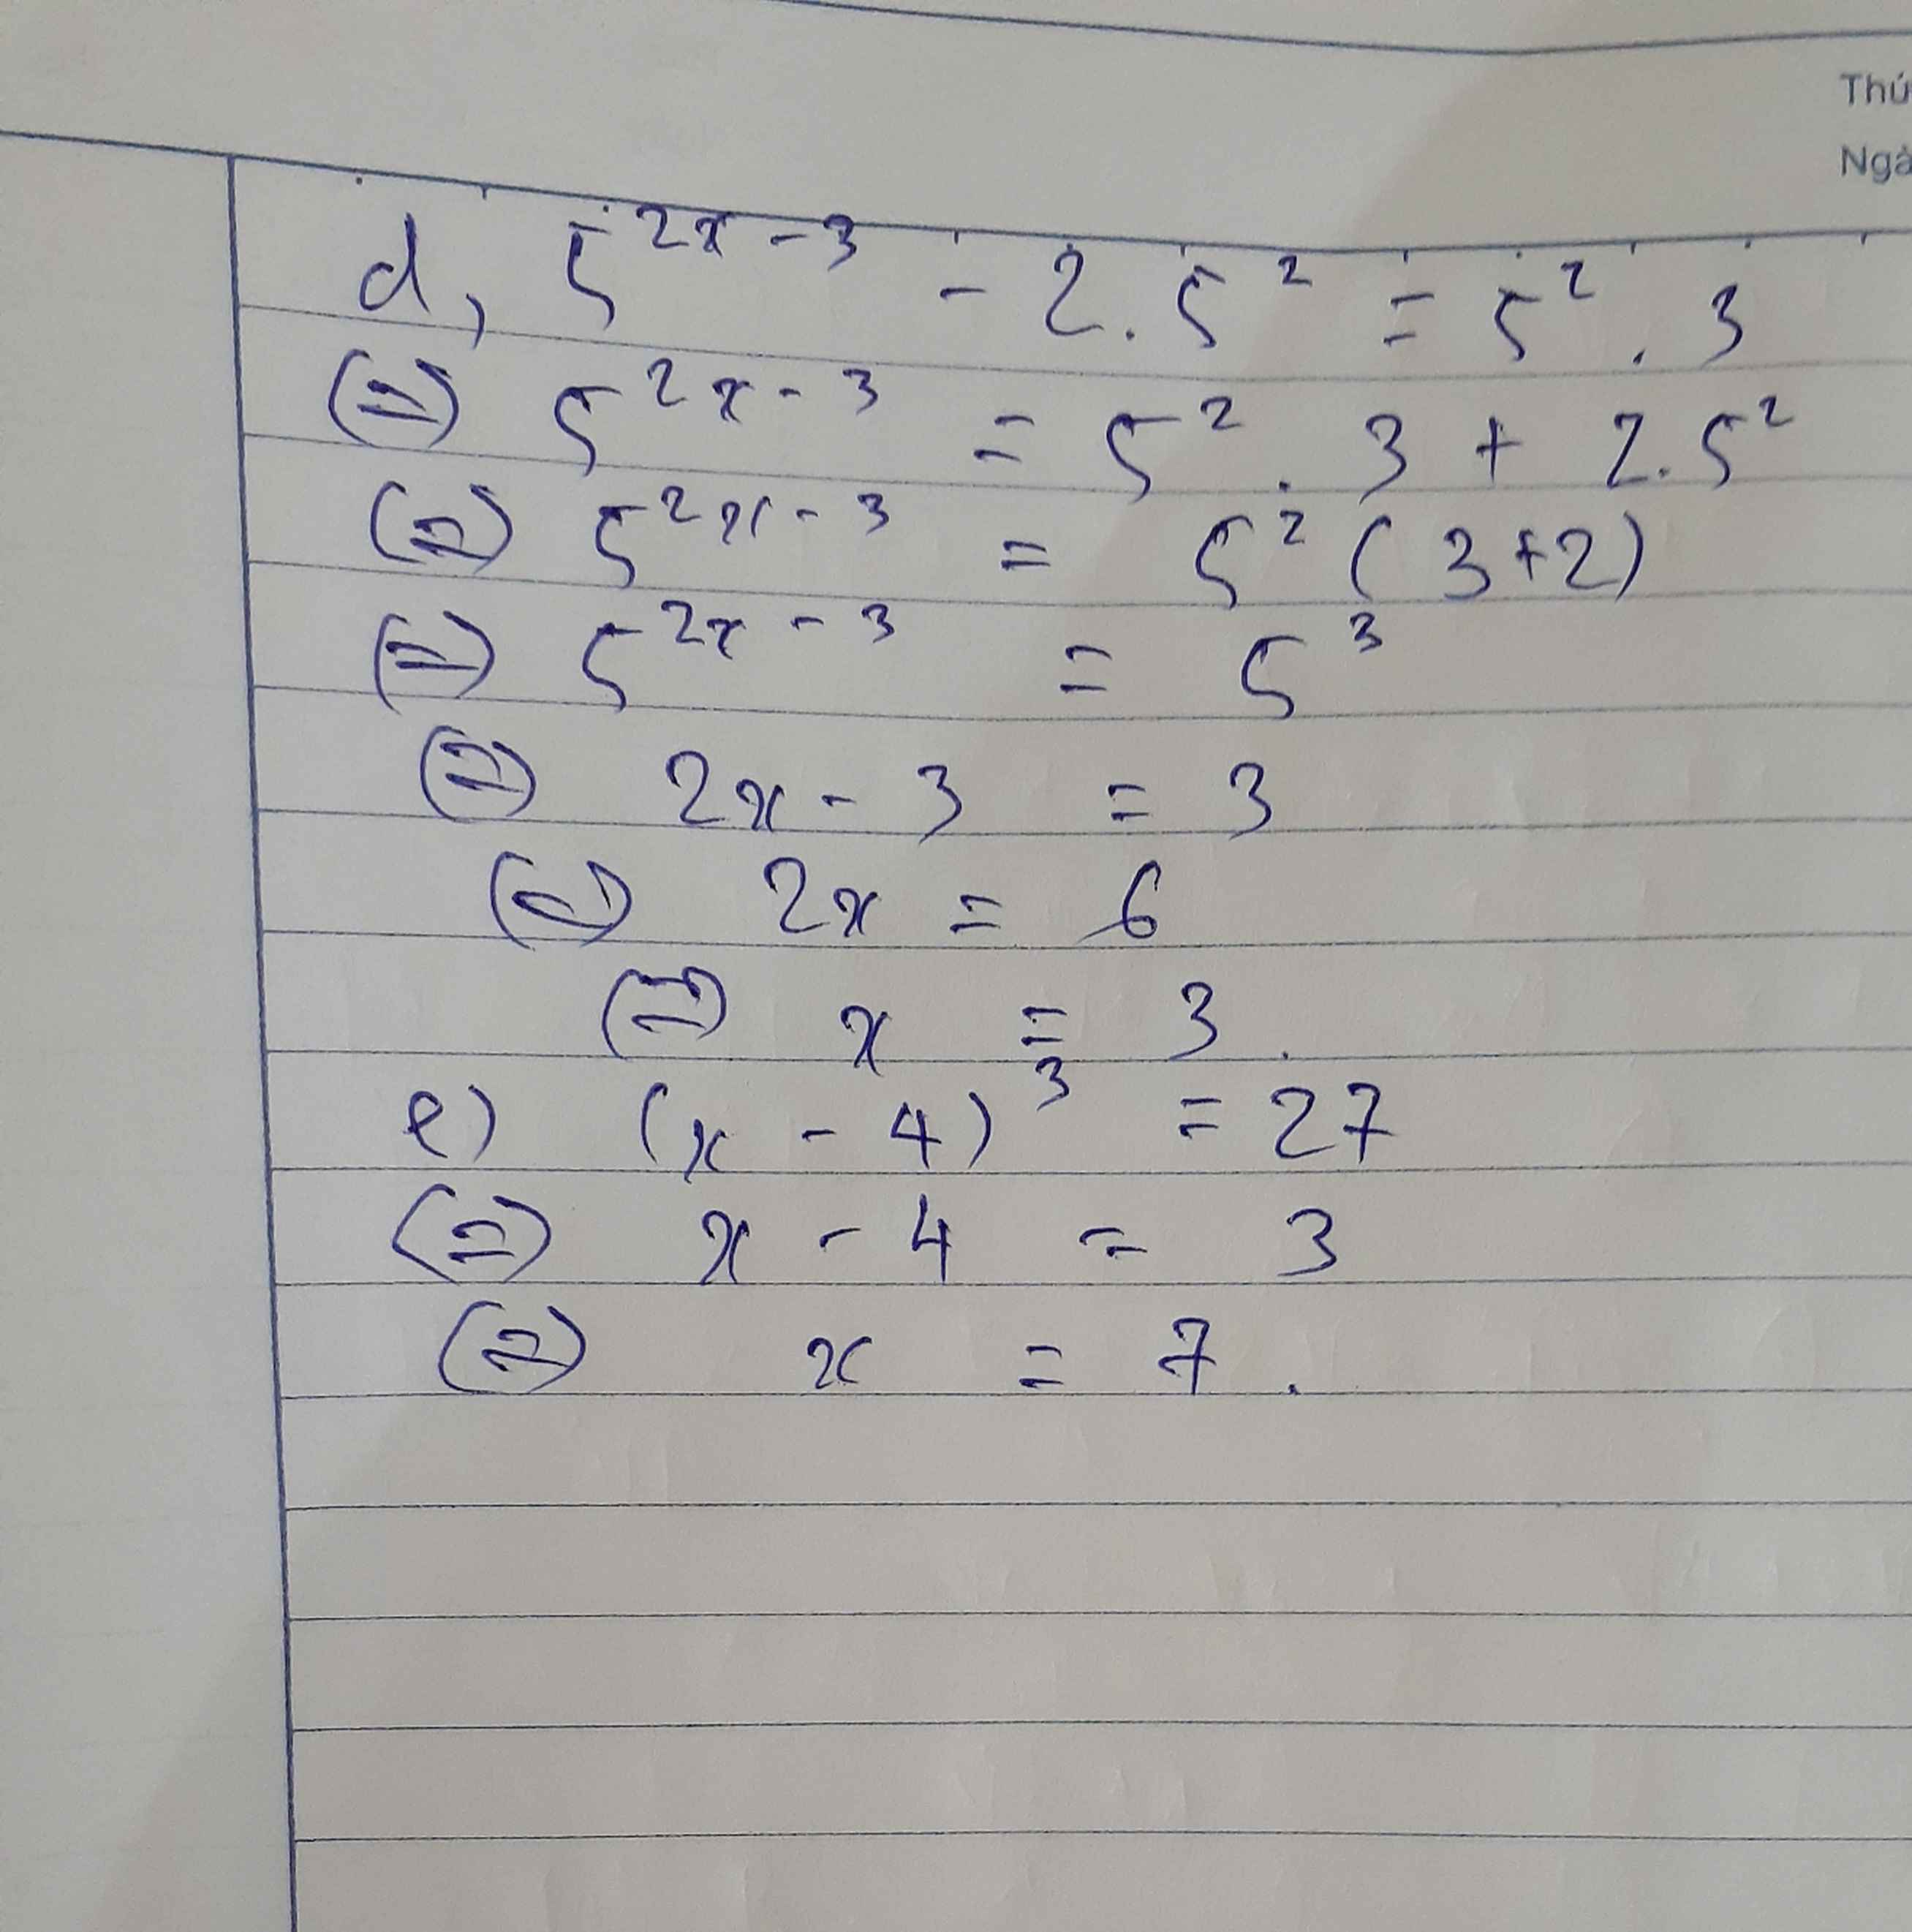 Thứ
Ngà
d, 5^{2x-3} - 2.5^2 = 5^2.3
(=) 5^{2x-3} = 5^2.3 + 2.5^2
(=) 5^{2x-3} = 5^2(3+2)
(=) 5^{2x-3} = 5^3
(=) 2x-3 = 3
(=) 2x = 6
(=) x = 3.
e) (x-4)^3 = 27
(=) x-4 = 3
(=) x = 7.